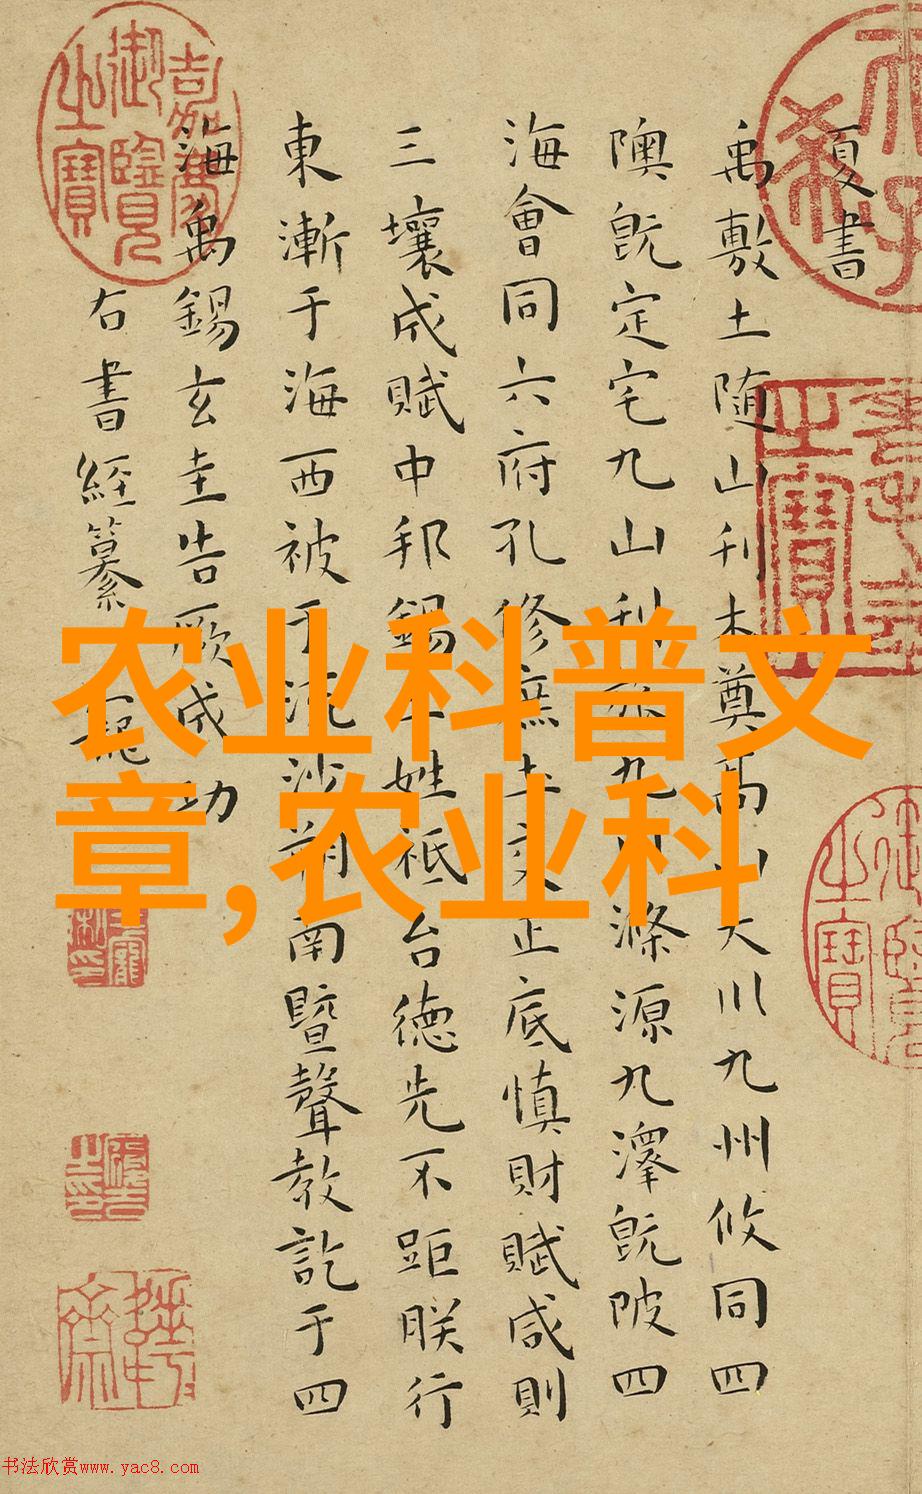 夏書
禹敷土随山刊木奠高山大川九州攸同四
隩既定宅九山刊旅九川滌源九澤既陂四
海會同六府孔修庶土交正底慎財賦咸則
三壤成賦中邦錫土姓祗台德先不距朕行
東漸于海西被于流沙朔南暨聲教訖于四
海禹錫玄圭告厥成功
右書經纂 寵
嘉慶御覽之寶
农业科普文
章,农业科
书法欣赏www.yac8.com